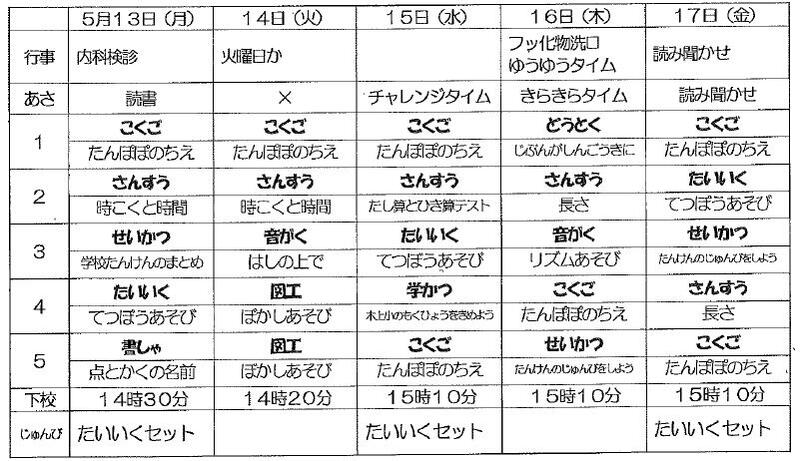 5月13日（月） 14日（火） 15日（水） 16日（木） 17日（金）
行事 内科検診 火曜日か フッ化物洗口 読み聞かせ
ゆうゆうタイム
あさ 読書 × チャレンジタイム きらきらタイム 読み聞かせ
1 こくご こくご こくご どうとく こくご
たんぽぽのちえ たんぽぽのちえ たんぽぽのちえ じぶんがしんごうきに たんぽぽのちえ
2 さんすう さんすう さんすう さんすう たいいく
時こくと時間 時こくと時間 たし算とひき算テスト 長さ てつぼうあそび
3 せいかつ 音がく たいいく 音がく せいかつ
学校たんけんのまとめ はしの上で てつぼうあそび リズムあそび たんけんのじゅんびをしよう
4 たいいく 図工 学かつ こくご さんすう
てつぼうあそび ぼかしあそび 木上小のもくひょうをきめよう たんぽぽのちえ 長さ
5 書しゃ 図工 こくご せいかつ こくご
点とかくの名前 ぼかしあそび たんぽぽのちえ たんけんのじゅんびをしよう たんぽぽのちえ
下校 14時30分 14時20分 15時10分 15時10分 15時10分
じゅんび たいいくセット たいいくセット たいいくセット